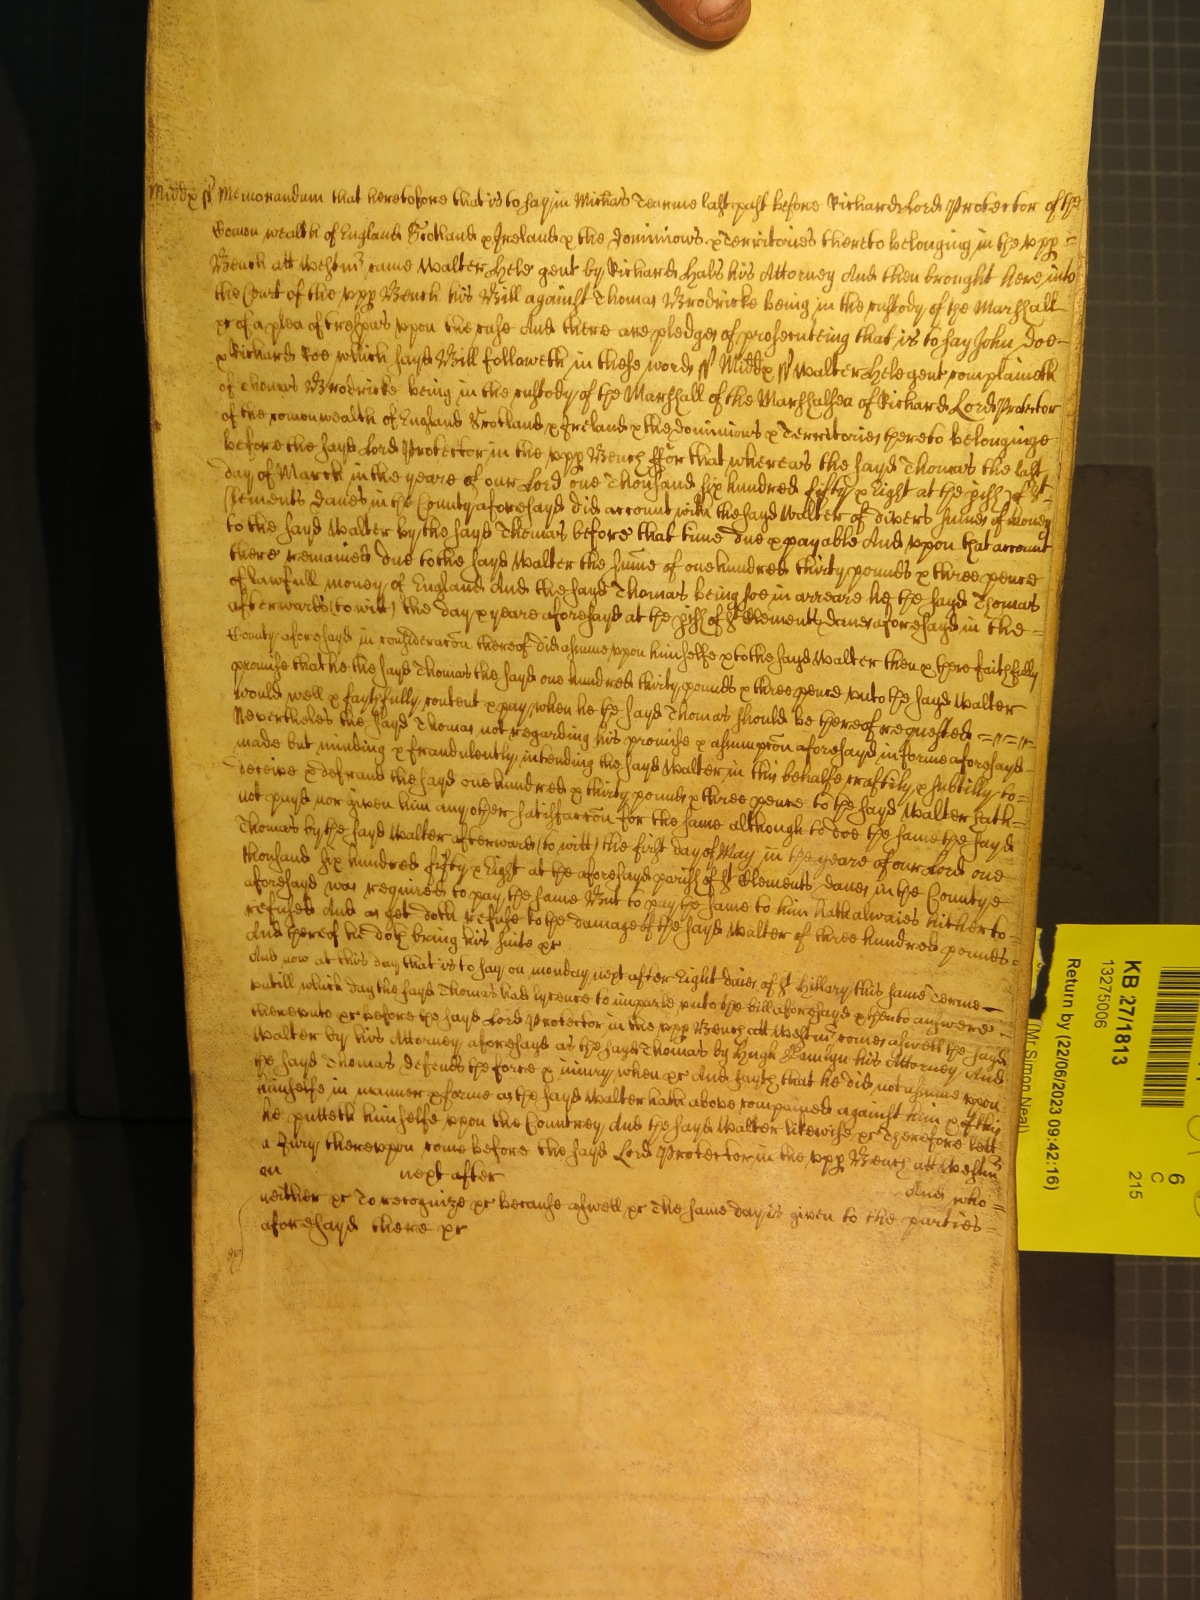 Middx ss Memorandum that heretofore that is to say in Michas Tearme last past before Richard Lord Protector of the
Comon wealth of England Scotland & Ireland & the dominions & Territories thereto belonging in the vpp =
Bench att Westmr came Walter Hele gent by Richard Hals his Attorney And then brought here into
the Court of the vpp Bench his Bill against Thomas Brodricke being in the custody of the Marshall
&c of a plea of trespas vpon the case And there are pledges of prosecuteing that is to say John Doe
& Richard Roe which sayd Bill followeth in these words ss Middx ss Walter Hele gent complaineth
of Thomas Brodricke being in the custody of the Marshall of the Marshalsea of Richard Lord Protector
of the comonwealth of England Scotland & Ireland & the dominions & Territories thereto belonginge
before the sayd Lord Protector in the vpp Bench ffor that whereas the sayd Thomas the last
day of March in the yeare of our Lord one Thousand six hundred fifty & Eight at the pish of St
Clements Danes in the County aforesayd did account with the sayd Walter of divers sumes of money
to the sayd Walter by the sayd Thomas before that time due & payable And vpon that account
there remained due to the sayd Walter the sume of one hundred thirty pounds & three pence
of lawfull money of England And the sayd Thomas being soe in arreare he the sayd Thomas
afterwards (to witt) the day & yeare aforesayd at the pish of St Clements Danes aforesayd in the =
County aforesayd in consideracon thereof did assume vpon himselfe & to the sayd Walter then & there faithfully
promise that he the sayd Thomas the sayd one hundred thirty pounds & three pence vnto the sayd Walter
would well & faythfully content & pay when he the sayd Thomas should be thereof requested
Neverthelës the sayd Thomas not regarding his promise & assumpcon aforesayd in forme aforesayd
made but minding & fraudulently intending the sayd Walter in this behalfe craftily & subtilly to =
deceive & defraud the sayd one hundred & thirty pounds & three pence to the sayd Walter hath =
not payd nor given him any other satisfaccon for the same although to doe the same the sayd
Thomas by the sayd Walter afterwards (to witt) the first day of May in the yeare of our Lord one
thousand six hundred fifty & Eight at the aforesayd parish of St Clements Danes in the County
aforesayd was required to pay the same But to pay the same to him hath alwaies hitherto =
refused And as yet doth refuse to the damage of the sayd Walter of three hundred pounds =
And thereof he doth bring his suite &c
And now at this day that is to say on monday next after Eight daies of St Hillary this same Terme
vntill which day the sayd Thomas had lycence to imparle vnto the bill aforesayd & then to answere
therevnto &c before the sayd Lord Protector in the vpp Bench att Westmr comes aswell the sayd
Walter by his Attorney aforesayd as the sayd Thomas by Hugh his Attorney And
the sayd Thomas defends the force & iniury when &c And sayth that he did not assume vpon
himselfe in manner & forme as the sayd Walter hath above compained against him & of this
he putteth himselfe vpon the Countrey And the sayd Walter likewise &c Therefore lett
a Jury therevpon come before the sayd Lord Protector in the vpp Bench att Westmr
on next after And who
neither &c To recognize &c because aswell &c The same day is given to the parties =
aforesayd there &c
KB 27/1813
13275006
Return by (22/06/2023 09:42:16)
(Mr Simon Neal)
6
C
215